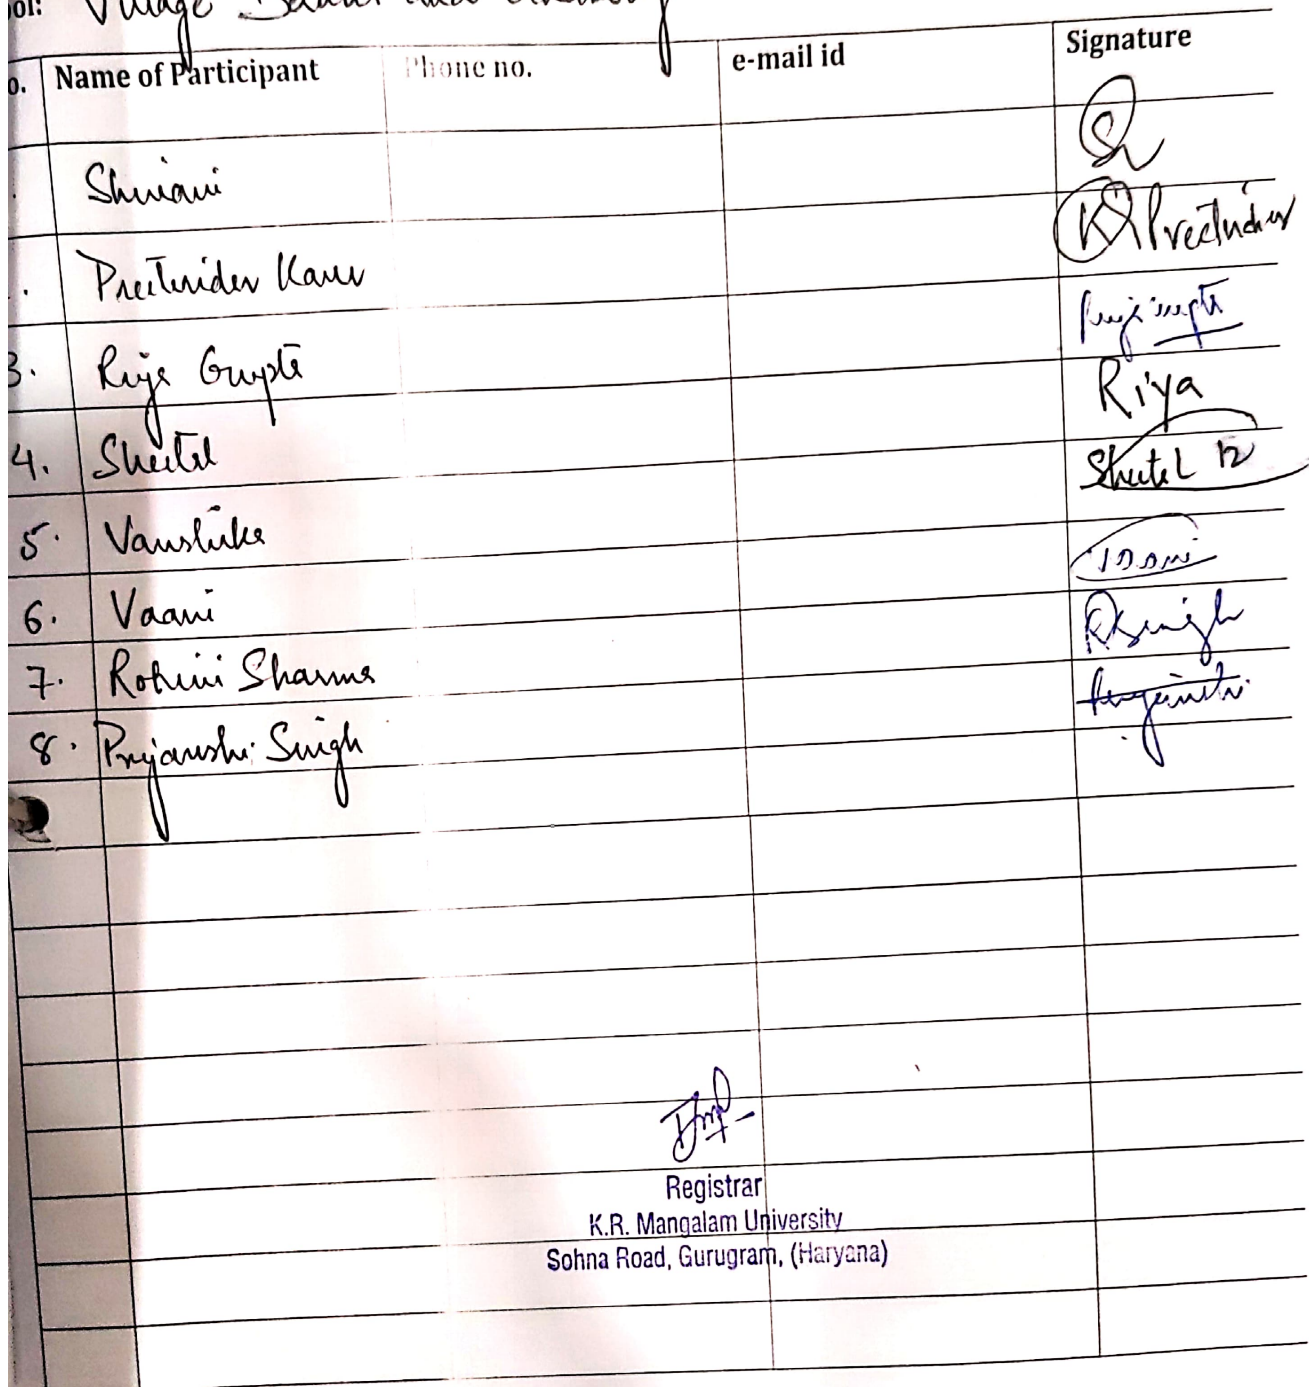 ool: Village
o. Name of Participant Phone no. e-mail id Signature
. Shivani
. Preetinder Kaur Preetinder
3. Riya Gupta
4. Sheetal Riya
5. Vanshika Sheetal
6. Vaani
7. Rohini Sharma RSingh
8. Priyanshi Singh
Registrar
K.R. Mangalam University
Sohna Road, Gurugram, (Haryana)